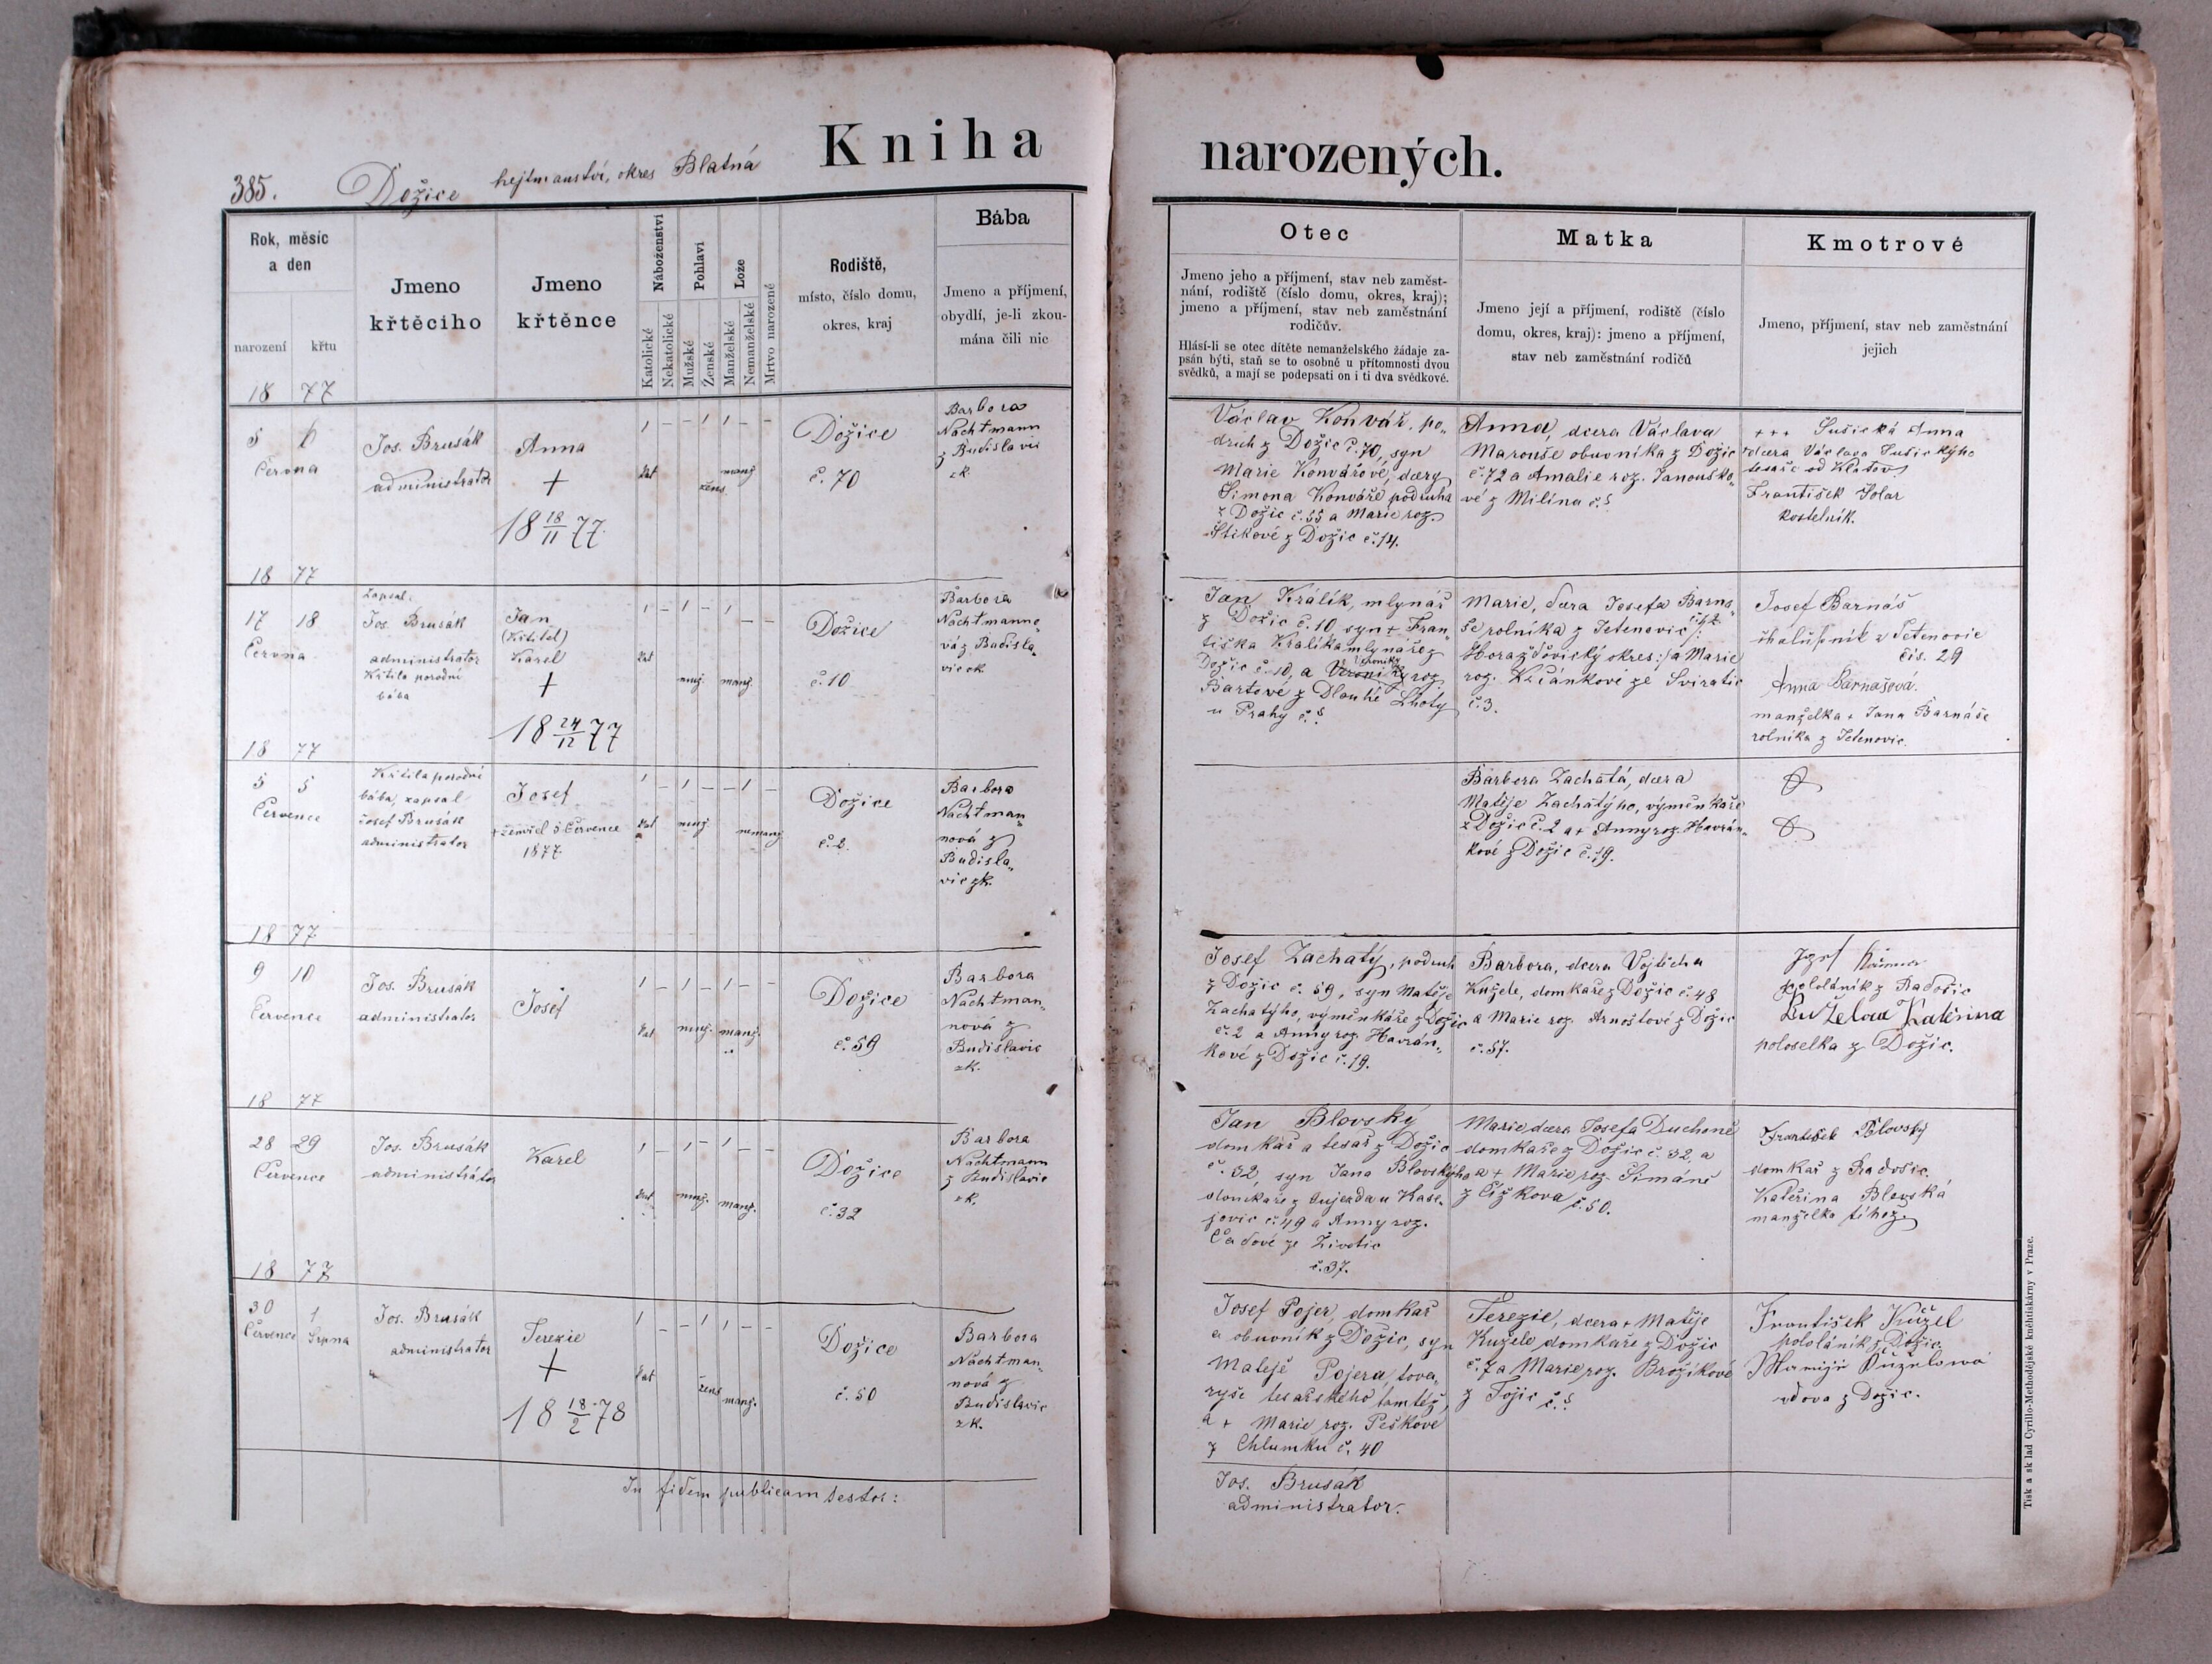 Kniha narozených.
385. Dožice hejtmanství, okres Blatná
Rok, měsíc
a den
narození křtu
18 77
Jmeno
křtěcího
Jmeno
křtěnce
Náboženství
Katolické
Nekatolické
Pohlaví
Mužské
Ženské
Lože
Manželské
Nemanželské
Mrtvo narozené
Rodiště,
místo, číslo domu,
okres, kraj
Bába
Jmeno a příjmení,
obydlí, je-li zkou-
mána čili nic
Otec
Jmeno jeho a příjmení, stav neb zaměst-
nání, rodiště (číslo domu, okres, kraj);
jmeno a příjmení, stav neb zaměstnání
rodičův.
Hlásí-li se otec dítěte nemanželského žádaje za-
psán býti, staň se to osobně u přítomnosti dvou
svědků, a mají se podepsati on i ti dva svědkové.
Matka
Jmeno její a příjmení, rodiště (číslo
domu, okres, kraj): jmeno a příjmení,
stav neb zaměstnání rodičů
Kmotrové
Jmeno, příjmení, stav neb zaměstnání
jejich
5 6
Června
Jos. Brusák
administrator
Anna
+
18 18/11 77
kat
žens.
manž
Dožice
č. 70
Barbora
Nachtmann
z Budislavic
zk.
Václav Konvář, po„
druh z Dožic č. 70, syn
Marie Konvářové, dcery
Šimona Konváře podruha
z Dožic č. 55 a Marie roz.
Štikové z Dožic č. 14.
Anna, dcera Václava
Marouše obuvníka z Dožic
č. 72 a Amalie roz. Janouško„
vé z Milína č.
+++ Sušická Anna
dcera Václava Sušického
tesaře od Klatov
František Solar
kostelník.
18 77
17 18
Června
Zapsal:
Jos. Brusák
administrator
Křtila porodní
bába
Jan
(Křtitel)
Karel
+
18 24/12 77
kat
muž.
manž.
Dožice
č. 10
Barbora
Nachtmanno„
vá z Budisla„
vic zk.
Jan Králík, mlynář
z Dožic č. 10 syn + Fran„
tiška Králíka mlynáře z
Dožic č. 10, a
Bartové z Dlouhé Lhoty
u Prahy č.
Marie, dcera Josefa Barna„
še rolníka z Tetenovic
Horažďovický okres:/ a Marie
roz. Křánkové ze Sviratic
č. 3.
Josef Barnáš
chalupník z Tetenovic
čís. 29
Anna Barnašová.
manželka + Jana Barnáše
rolníka z Tetenovic.
18 77
5 5
Července
Křtila porodní
bába, zapsal
Josef Brusák
administrator
Josef
+ zemřel 5 Července
1877.
kat
muž.
nemanž.
Dožice
č. 2.
Barbora
Nachtman„
nová z
Budisla„
vic zk.
Barbora Zachatá, dcera
Matěje Zachatýho, výměnkáře
z Dožic č. 2 a + Anny roz. Havrán„
kové z Dožic č. 19.
18 77
9 10
Července
Jos. Brusák
administrator
Josef
kat
muž.
manž.
Dožice
č. 59
Barbora
Nachtman„
nová z
Budislavic
zk.
Josef Zachatý, podruh
z Dožic č. 59, syn Matěje
Zachatýho, výměnkáře z Dožic
č. 2 a Anny roz. Havrán„
kové z Dožic č. 19.
Barbora, dcera Vojtěcha
Kužele, domkáře z Dožic č. 48
a Marie roz. Arnoštové z Dožic
č. 57.
pololáník z Radošic
Kuželová Katěrina
poloselka z Dožic.
18 77
28 29
Července
Jos. Brusák
administrátor
Karel
kat
muž.
manž.
Dožice
č. 32
Barbora
Nachtmann
z Budislavic
zk.
Jan Blovský
domkář a tesař z Dožic
č. 32, syn Jana Blovskýho
domkáře z Újezda u Kase„
jovic č. 49 a Anny roz.
Čadové ze Životic
č. 37.
Marie dcera Josefa Duchoně
domkáře z Dožic č. 32. a
a + Marie roz. Šimáně
z Čížkova č. 50.
František Blovský
domkář z Radošic.
Kateřina Blovská
manželka téhož.
18 77
30 1
Července Srpna
Jos. Brusák
administrator
Terezie
+
18 18/2 78
kat
žens
manž.
Dožice
č. 50
Barbora
Nachtman„
nová z
Budislavic
zk.
Josef Pojer, domkář
a obuvník z Dožic, syn
Matěje Pojera, tova„
ryše tesařského tamtéž,
a + Marie roz. Peškové
z Chlumku č. 40
Terezie, dcera + Matěje
Kužele domkáře z Dožic
č. 7 a Marie roz. Brožíkové
z Tojic č.
František Kužel
pololáník z Dožic.
Marije Kuželowá
vdova z Dožic.
In fidem publicam testor:
Jos. Brusák
administrator.
Tisk a sklad Cyrillo-Methodějské kněhtiskárny v Praze.